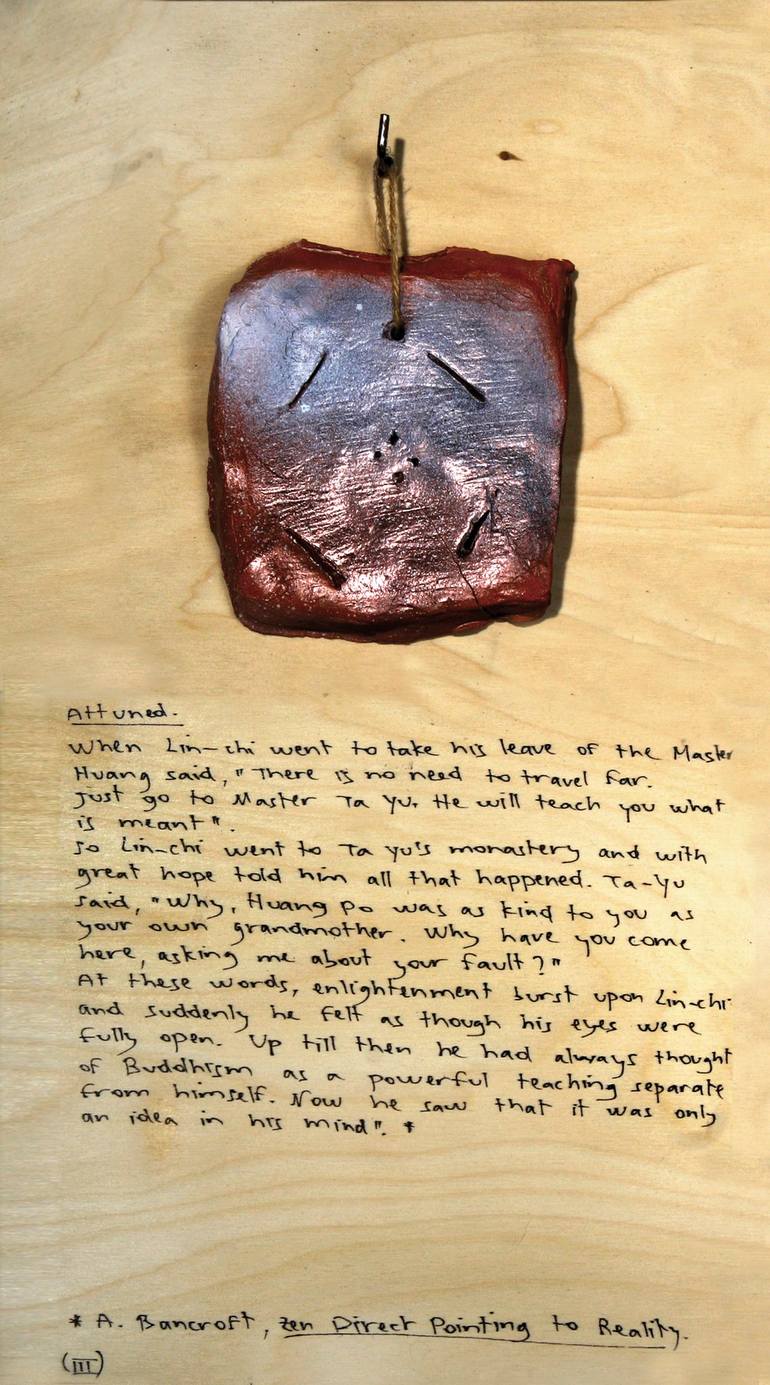 Attuned.
When Lin-chi went to take his leave of the Master
Huang said, "There is no need to travel far.
Just go to Master Ta Yu. He will teach you what
is meant".
So Lin-chi went to Ta Yu's monastery and with
great hope told him all that happened. Ta-Yu
said, "Why, Huang Po was as kind to you as
your own grandmother. Why have you come
here, asking me about your fault?"
At these words, enlightenment burst upon Lin-chi
and suddenly he felt as though his eyes were
fully open. Up till then he had always thought
of Buddhism as a powerful teaching separate
from himself. Now he saw that it was only
an idea in his mind". *
* A. Bancroft, Zen Direct Pointing to Reality.
(III)